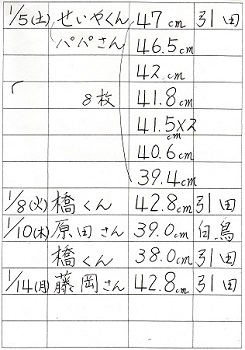 1/5(土) せいやくん 47cm 引田
パパさん 46.5cm
42cm
8枚 41.8cm
41.5×2cm
40.6cm
39.4cm
1/8(火) 橋くん 42.8cm 引田
1/10(木) 原田さん 39.0cm 白鳥
橋くん 38.0cm 引田
1/14(月) 藤岡さん 42.8cm 引田